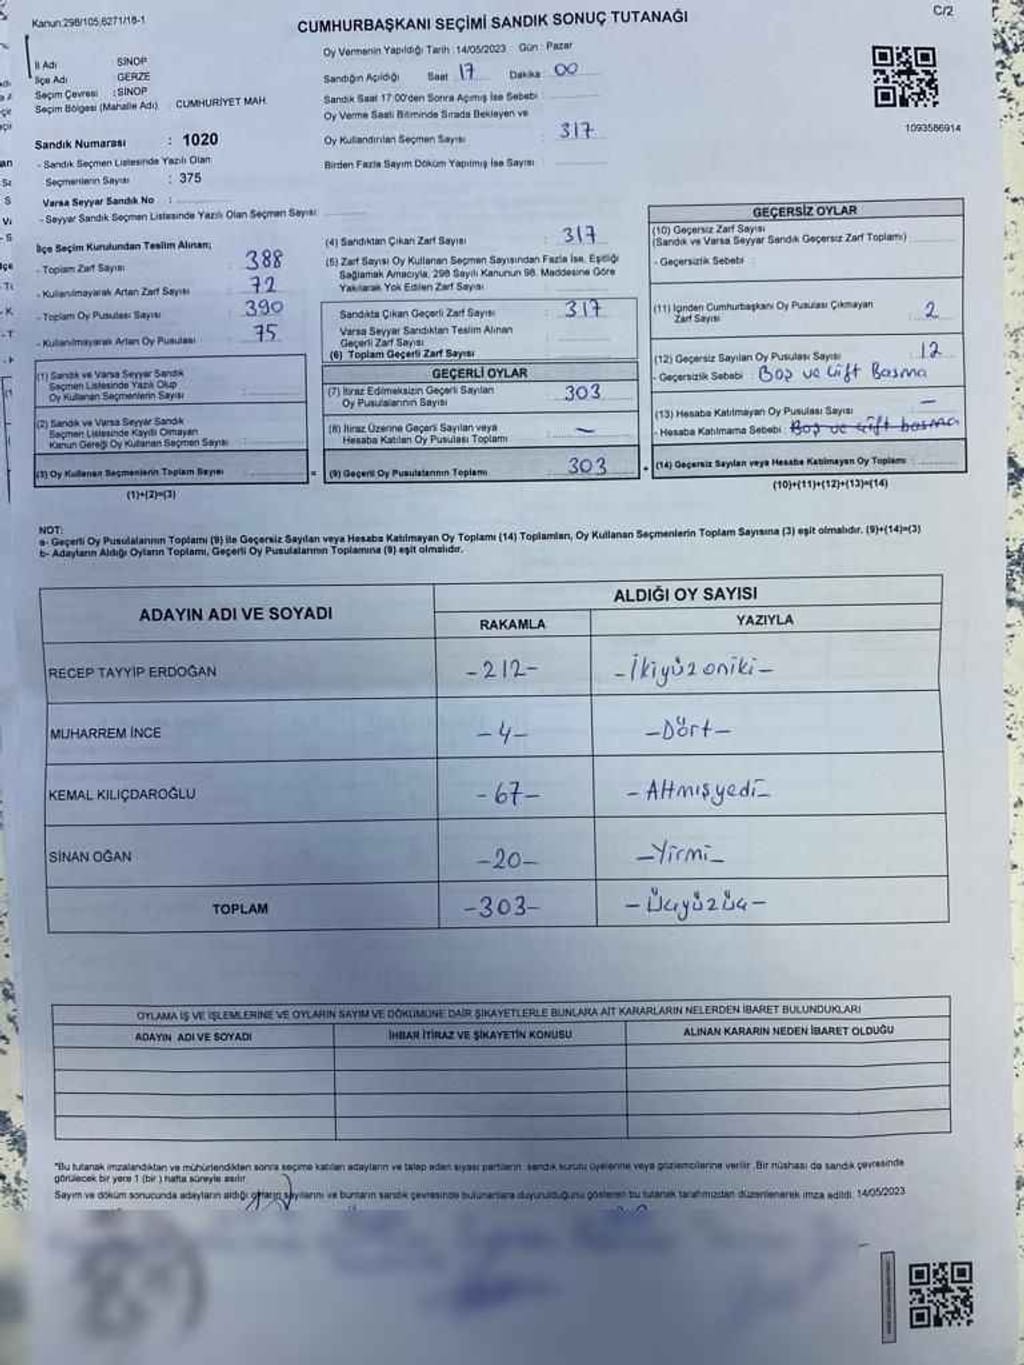 Kanun:298/105,6271/18-1
CUMHURBAŞKANI SEÇİMİ SANDIK SONUÇ TUTANAĞI
C/2
İl Adı SİNOP
İlçe Adı GERZE
Seçim Çevresi : SİNOP
Seçim Bölgesi (Mahalle Adı) CUMHURİYET MAH.
Sandık Numarası : 1020
- Sandık Seçmen Listesinde Yazılı Olan
Seçmenlerin Sayısı : 375
Varsa Seyyar Sandık No :
- Seyyar Sandık Seçmen Listesinde Yazılı Olan Seçmen Sayısı
Oy Vermenin Yapıldığı Tarih : 14/05/2023 Gün : Pazar
Sandığın Açıldığı Saat 17 Dakika 00
Sandık Saat 17:00'den Sonra Açılmış İse Sebebi
Oy Verme Saati Bitiminde Sırada Bekleyen ve
Oy Kullandırılan Seçmen Sayısı : 317
Birden Fazla Sayım Döküm Yapılmış İse Sayısı
1093586914
İlçe Seçim Kurulundan Teslim Alınan;
- Toplam Zarf Sayısı 388
- Kullanılmayarak Artan Zarf Sayısı 72
- Toplam Oy Pusulası Sayısı 390
- Kullanılmayarak Artan Oy Pusulası 75
(1) Sandık ve Varsa Seyyar Sandık
Seçmen Listesinde Yazılı Olup
Oy Kullanan Seçmenlerin Sayısı
(2) Sandık ve Varsa Seyyar Sandık
Seçmen Listesinde Kayıtlı Olmayan
Kanun Gereği Oy Kullanan Seçmen Sayısı
(3) Oy Kullanan Seçmenlerin Toplam Sayısı
(1)+(2)=(3)
(4) Sandıktan Çıkan Zarf Sayısı : 317
(5) Zarf Sayısı Oy Kullanan Seçmen Sayısından Fazla İse, Eşitliği
Sağlamak Amacıyla, 298 Sayılı Kanunun 98. Maddesine Göre
Yakılarak Yok Edilen Zarf Sayısı
Sandıkta Çıkan Geçerli Zarf Sayısı : 317
Varsa Seyyar Sandıktan Teslim Alınan
Geçerli Zarf Sayısı
(6) Toplam Geçerli Zarf Sayısı
GEÇERLİ OYLAR
(7) İtiraz Edilmeksizin Geçerli Sayılan
Oy Pusulalarının Sayısı 303
(8) İtiraz Üzerine Geçerli Sayılan veya
Hesaba Katılan Oy Pusulası Toplamı –
= (9) Geçerli Oy Pusulalarının Toplamı 303
GEÇERSİZ OYLAR
(10) Geçersiz Zarf Sayısı
(Sandık ve Varsa Seyyar Sandık Geçersiz Zarf Toplamı)
- Geçersizlik Sebebi
(11) İçinden Cumhurbaşkanı Oy Pusulası Çıkmayan
Zarf Sayısı 2
(12) Geçersiz Sayılan Oy Pusulası Sayısı 12
- Geçersizlik Sebebi : Boş ve Çift Basma
(13) Hesaba Katılmayan Oy Pusulası Sayısı –
- Hesaba Katılmama Sebebi : Boş ve çift basma
+ (14) Geçersiz Sayılan veya Hesaba Katılmayan Oy Toplamı
(10)+(11)+(12)+(13)=(14)
NOT:
a- Geçerli Oy Pusulalarının Toplamı (9) ile Geçersiz Sayılan veya Hesaba Katılmayan Oy Toplamı (14) Toplamları, Oy Kullanan Seçmenlerin Toplam Sayısına (3) eşit olmalıdır. (9)+(14)=(3)
b- Adayların Aldığı Oyların Toplamı, Geçerli Oy Pusulalarının Toplamına (9) eşit olmalıdır.
ADAYIN ADI VE SOYADI
ALDIĞI OY SAYISI
RAKAMLA YAZIYLA
RECEP TAYYİP ERDOĞAN -212- -İkiyüz oniki-
MUHARREM İNCE -4- -Dört-
KEMAL KILIÇDAROĞLU -67- -Altmışyedi-
SİNAN OĞAN -20- -Yirmi-
TOPLAM -303- -Üçyüzüç-
OYLAMA İŞ VE İŞLEMLERİNE VE OYLARIN SAYIM VE DÖKÜMÜNE DAİR ŞİKAYETLERLE BUNLARA AİT KARARLARIN NELERDEN İBARET BULUNDUKLARI
ADAYIN ADI VE SOYADI İHBAR İTİRAZ VE ŞİKAYETİN KONUSU ALINAN KARARIN NEDEN İBARET OLDUĞU
*Bu tutanak imzalandıktan ve mühürlendikten sonra seçime katılan adayların ve talep eden siyasi partilerin sandık kurulu üyelerine veya gözlemcilerine verilir. Bir nüshası da sandık çevresinde
görülecek bir yere 1 (bir) hafta süreyle asılır
Sayım ve döküm sonucunda adayların aldığı oyların sayılarını ve bunların sandık çevresinde bulunanlara duyurulduğunu gösteren bu tutanak tarafımızdan düzenlenerek imza edildi. 14/05/2023